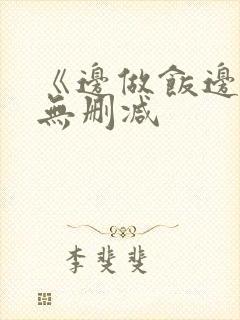 《邊做飯邊
無刪减
李斐斐